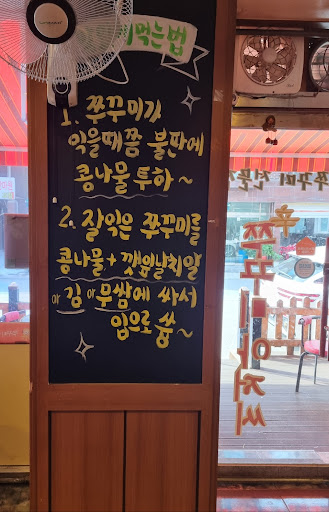 먹는법
1. 쭈꾸미가
익을때쯤 불판에
콩나물 투하~
2. 잘익은 쭈꾸미를
콩나물 + 깻잎날치알
or 김 or 무쌈에 싸서
입으로 쓩~
쭈꾸미 전문점
쭈꾸미